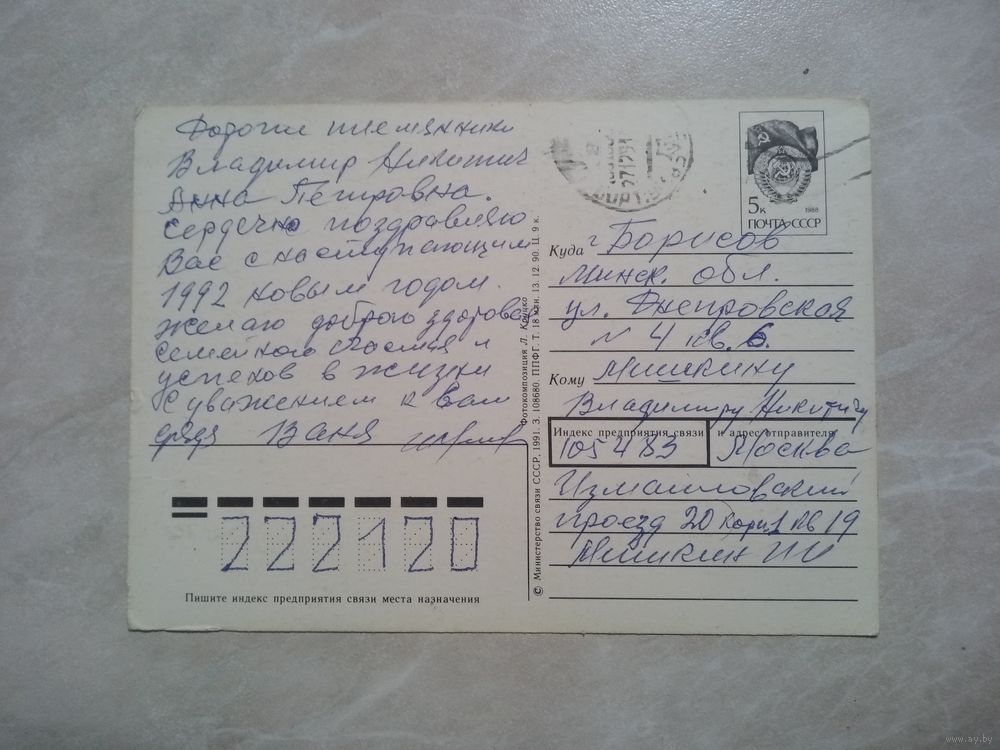 Дорогие племянники
Владимир Никитич
Анна Петровна.
Сердечно поздравляю
Вас с наступающим
1992 новым годом.
желаю доброго здоровья
семейного счастья и
успехов в жизни
С уважением к Вам
дядя Ваня
5к
1988
ПОЧТА СССР
271291
Куда г. Борисов
Минск. обл.
ул. Днепровская
№ 4 кв. 6.
Кому Мишкину
Владимиру Никитичу
Индекс предприятия связи и адрес отправителя
105483 Москва
Измайловский
проезд 20 корп 1 кв 19
Мишкин
222120
Пишите индекс предприятия связи места назначения
© Министерство связи СССР, 1991. З. 108680. ППФГ. Т. 18 млн. 13. 12. 90. Ц. 9 к.
Фотокомпозиция Л. Круцко
www.ay.by